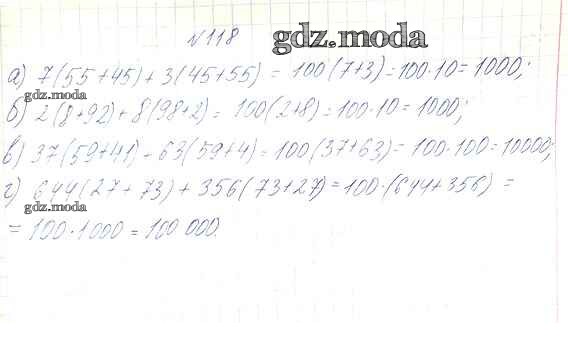 №118
gdz.moda
а) 7(55+45)+3(45+55) = 100(7+3)=100·10=1000;
gdz.moda
б) 2(8+92)+8(98+2)= 100(2+8)=100·10=1000;
в) 37(59+41)-63(59+4)=100(37+63)=100·100=10000;
г) 644(27+73)+356(73+27)=100·(644+356) =
gdz.moda
=100·1000=100 000.